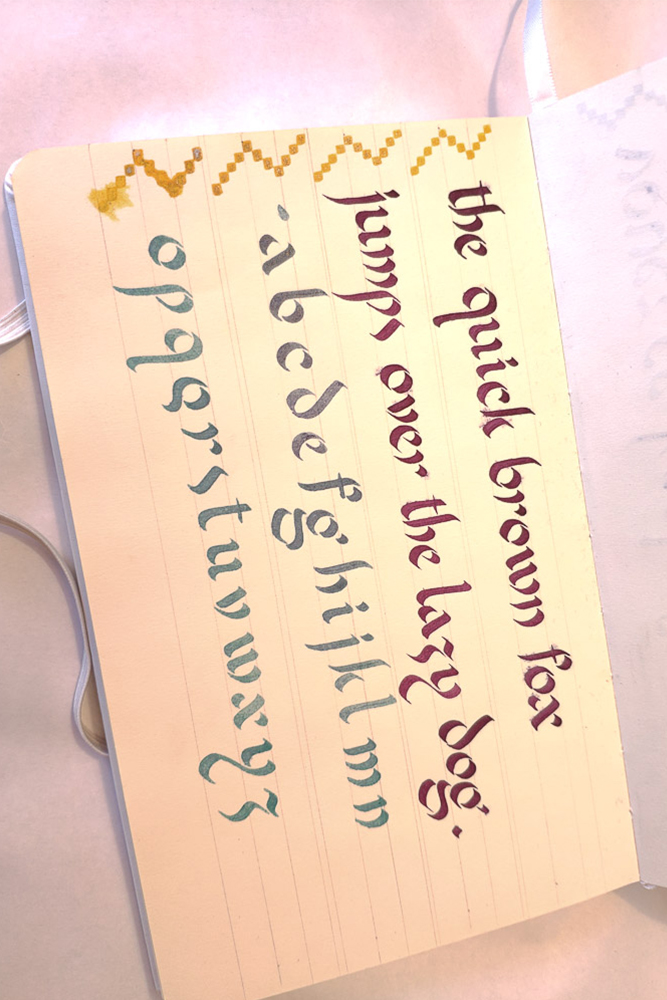 the quick brown fox
jumps over the lazy dog.
a b c d e f g h i j k l m n
o p q g r s t u v w x y z